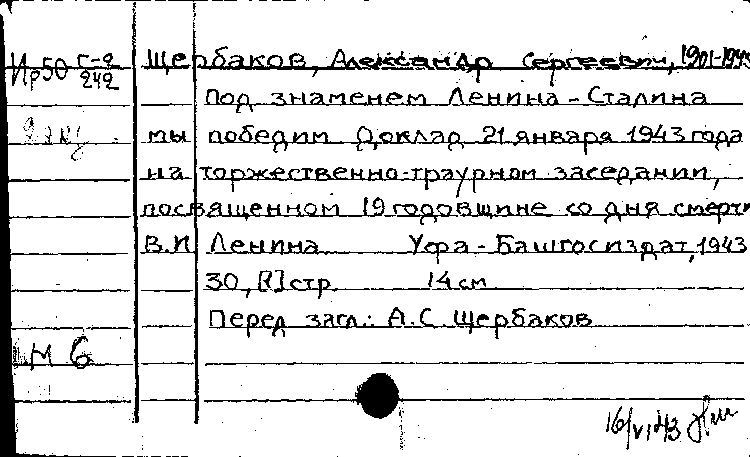 Ир50 Г-9/242
Щербаков, Александр Сергеевич, 1901-1945
Под знаменем Ленина-Сталина
мы победим Доклад 21 января 1943 года
на торжественно-траурном заседании,
посвященном 19 годовщине со дня смерти
В.И. Ленина Уфа-Башгосиздат, 1943
30, [1] стр. 14 см
Перед загл.: А.С. Щербаков
М 6
16/VI 43